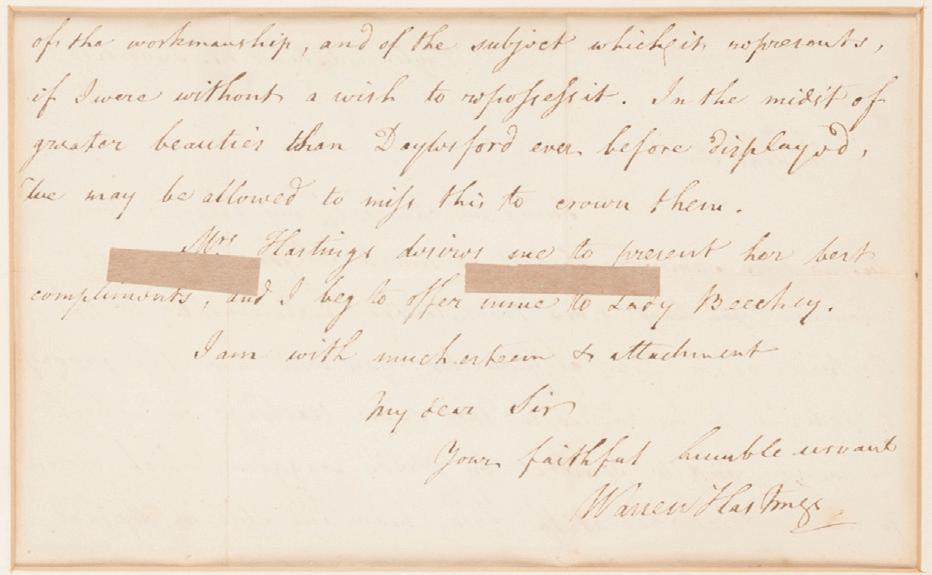 of the workmanship, and of the subject which it represents,
if I were without a wish to repossess it. In the midst of
greater beauties than Daylesford ever before display'd,
We may be allowed to miss this to crown them.
Mrs Hastings desires me to present her best
compliments, and I beg to offer mine to Lady Beechey.
I am with much esteem & attachment
My dear Sir
Your faithful humble servant
Warren Hastings